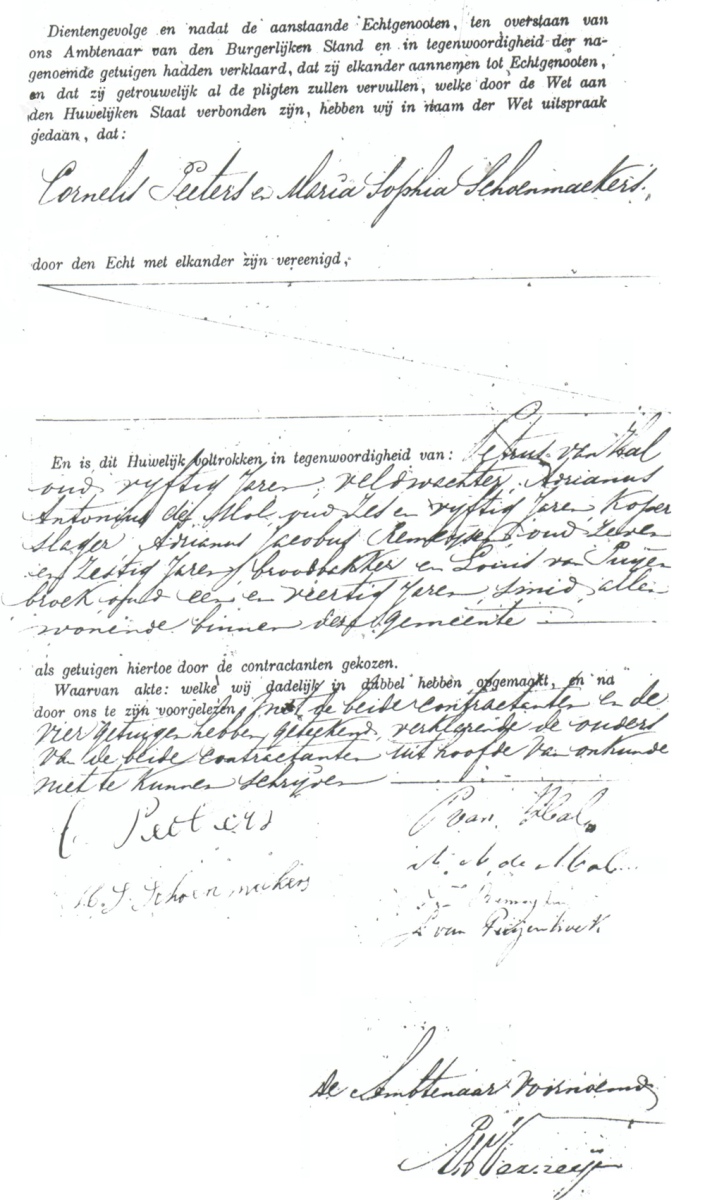 Dientengevolge en nadat de aanstaande Echtgenooten, ten overstaan van
ons Ambtenaar van den Burgerlijken Stand en in tegenwoordigheid der na-
genoemde getuigen hadden verklaard, dat zij elkander aannemen tot Echtgenooten,
en dat zij getrouwelijk al de pligten zullen vervullen, welke door de Wet aan
den Huwelijken Staat verbonden zijn, hebben wij in naam der Wet uitspraak
gedaan, dat:
Cornelis Peeters en Maria Sophia Schoenmaekers.,
door den Echt met elkander zijn vereenigd,
En is dit Huwelijk voltrokken in tegenwoordigheid van: Petrus van Hal
oud vyftig Jaren, veldwachter, Adrianus
Antonius de Mol oud Zes en vyftig Jaren, Koper
slager, Adrianus Jacobus oud Zeven
en Zestig Jaren, broodbakker en Louis van Puijen
broek oud een en veertig Jaren, smid, allen
wonende binnen deze gemeente
als getuigen hiertoe door de contractanten gekozen.
Waarvan akte: welke wij dadelijk in dubbel hebben opgemaakt, en na
door ons te zijn voorgelezen, met de beide contractanten en de
vier getuigen hebben geteekend, verklarende de ouders
van de beide contractanten uit hoofde van onkunde
niet te kunnen schrijven
C Peeters
P van Hal
M. S. Schoenmakers
A. A. de Mol
L van Puijenbroek
De Ambtenaar voornoemd,